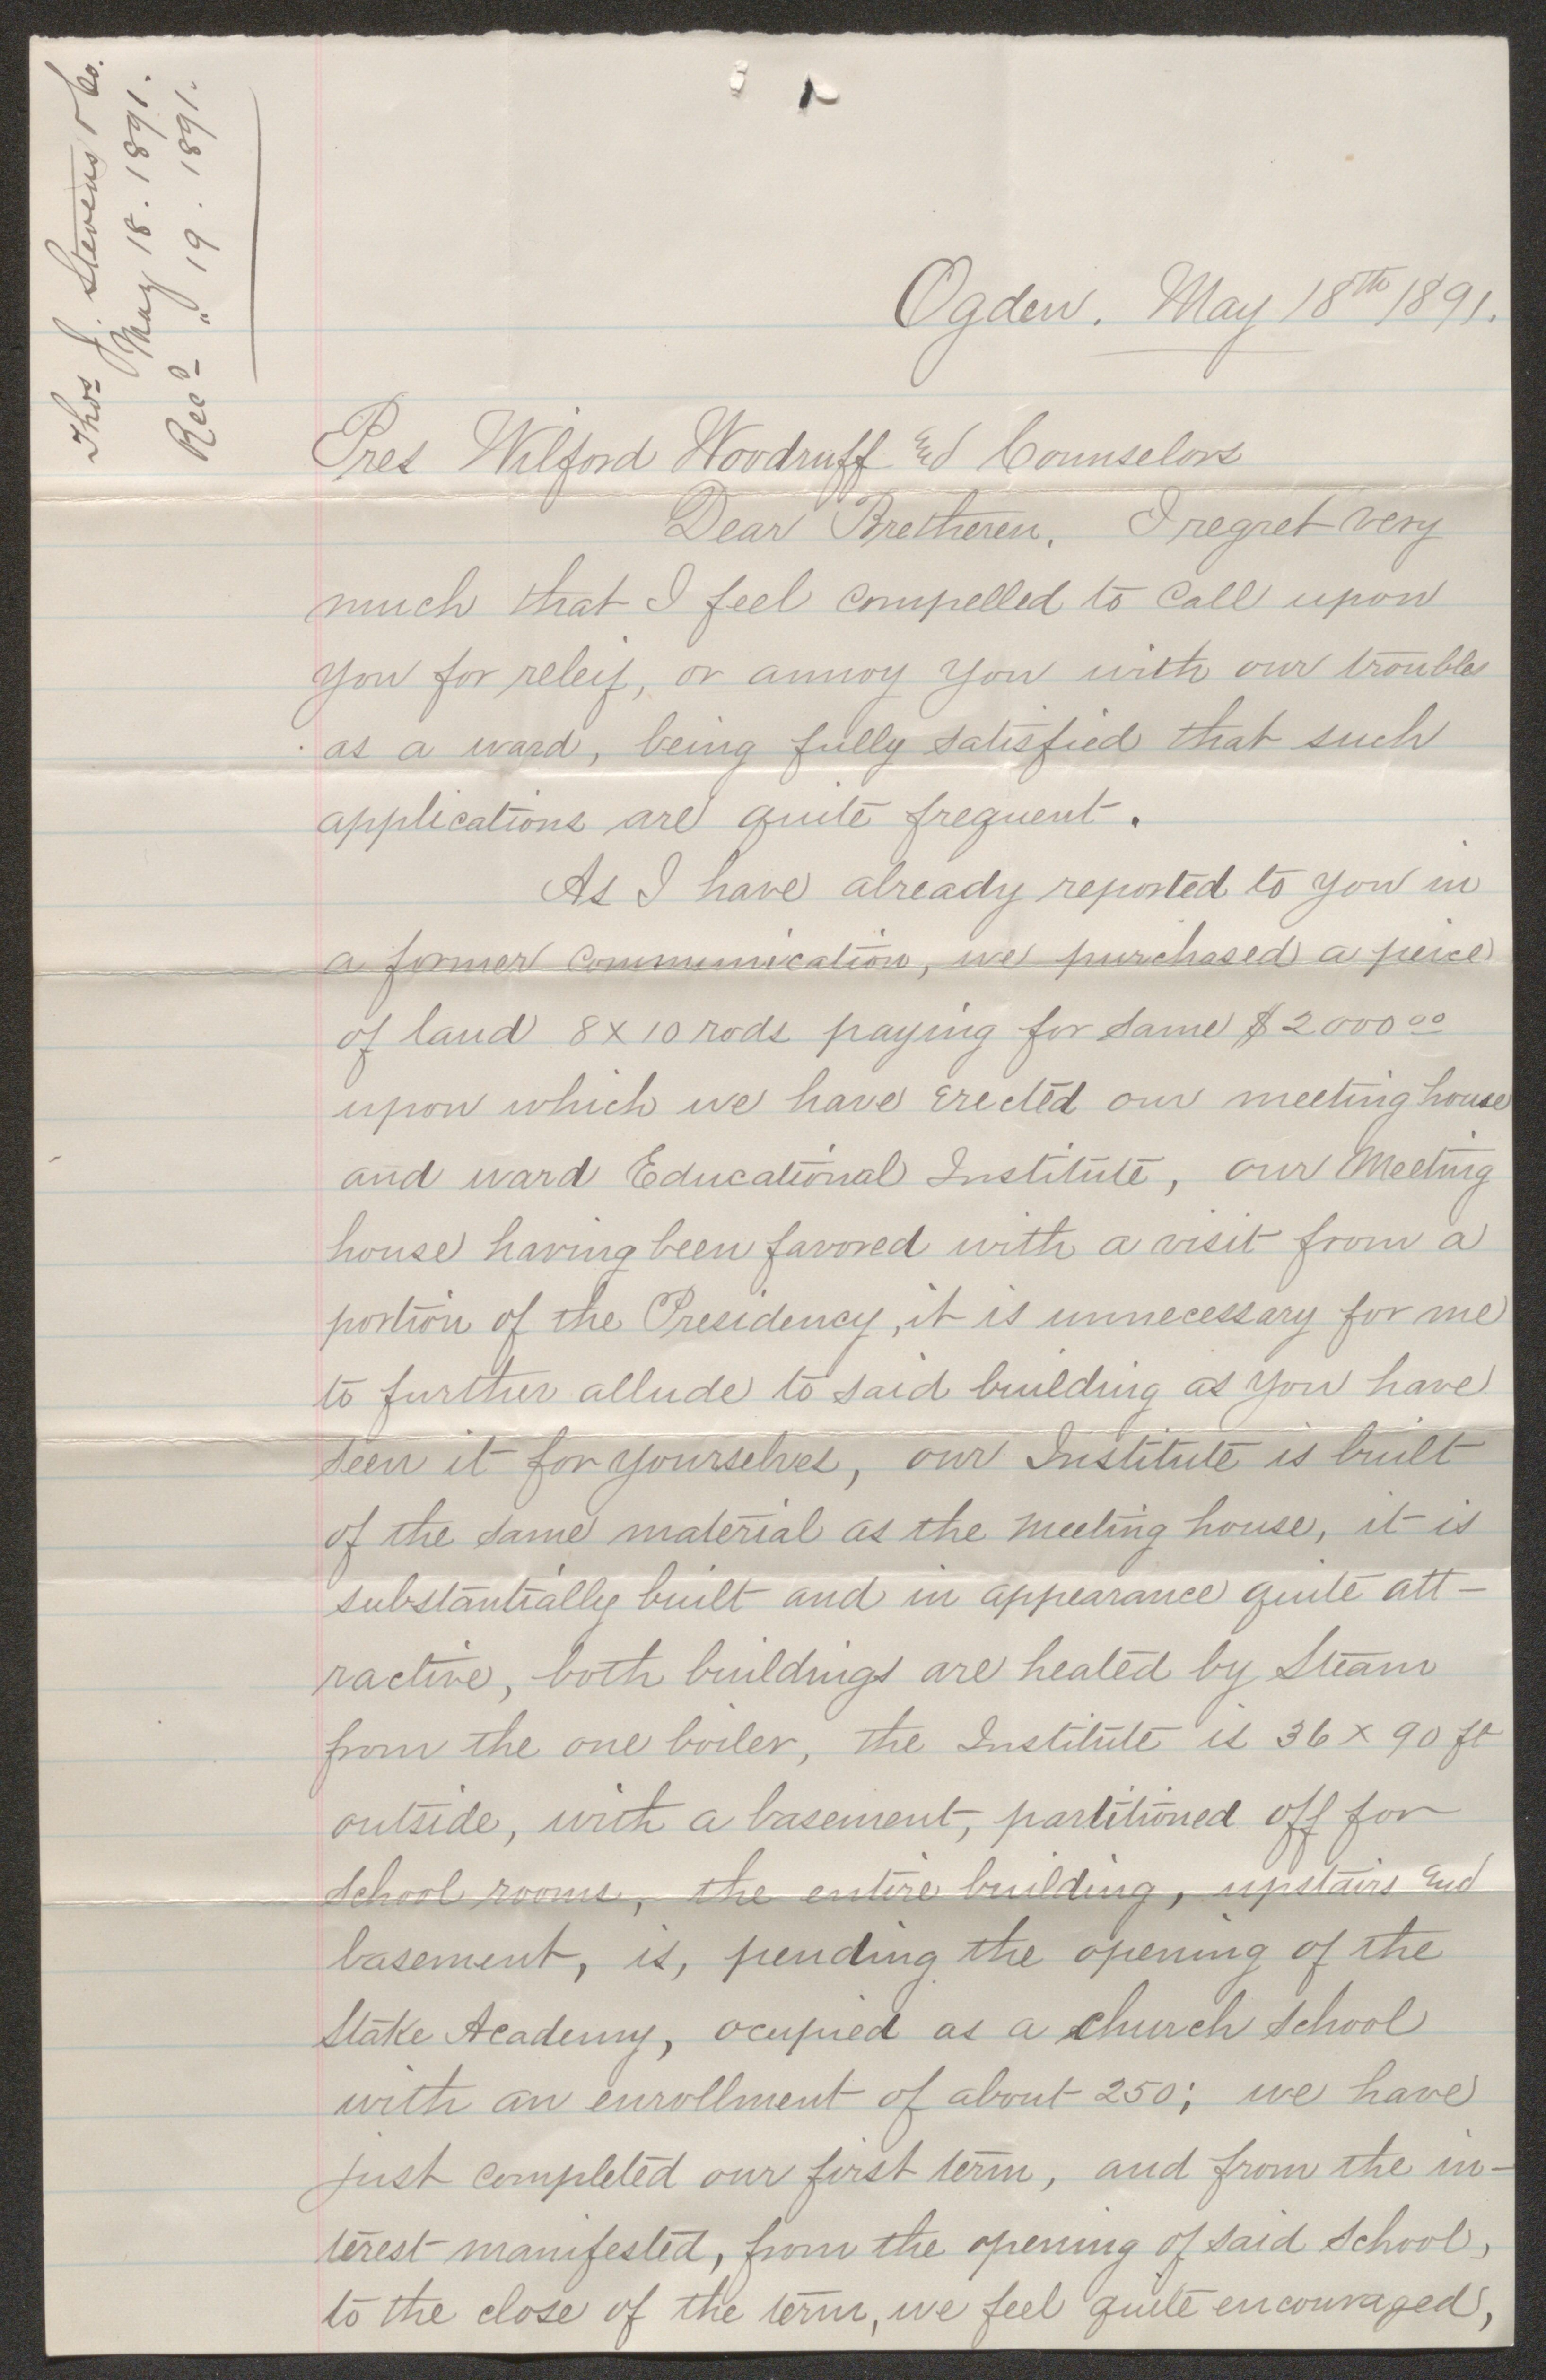 Thos J. Stevens & Co.
May 18. 1891.
Recd " 19. 1891.
Ogden. May 18th 1891.
Pres Wilford Woodruff and Counselors
Dear Bretheren. I regret very
much that I feel compelled to call upon
you for releif, or annoy you with our troubles
as a ward, being fully satisfied that such
applications are quite frequent.
As I have already reported to you in
a former communication, we purchased a peice
of land 8 x 10 rods paying for same $2000 00
upon which we have erected our meeting house
and ward Educational Institute, our Meeting
house having been favored with a visit from a
portion of the Presidency, it is unnecessary for me
to further allude to said building as you have
seen it for yourselves, our Institute is built
of the same material as the meeting house, it is
substantially built and in appearance quite att-
ractive, both buildings are heated by Steam
from the one boiler, the Institute is 36 x 90 ft
outside, with a basement, partitioned off for
school rooms, the entire building, upstairs and
basement, is, pending the opening of the
Stake Academy, ocupied as a church school
with an enrollment of about 250; we have
just completed our first term, and from the in-
terest manifested, from the opening of said school,
to the close of the term, we feel quite encouraged,